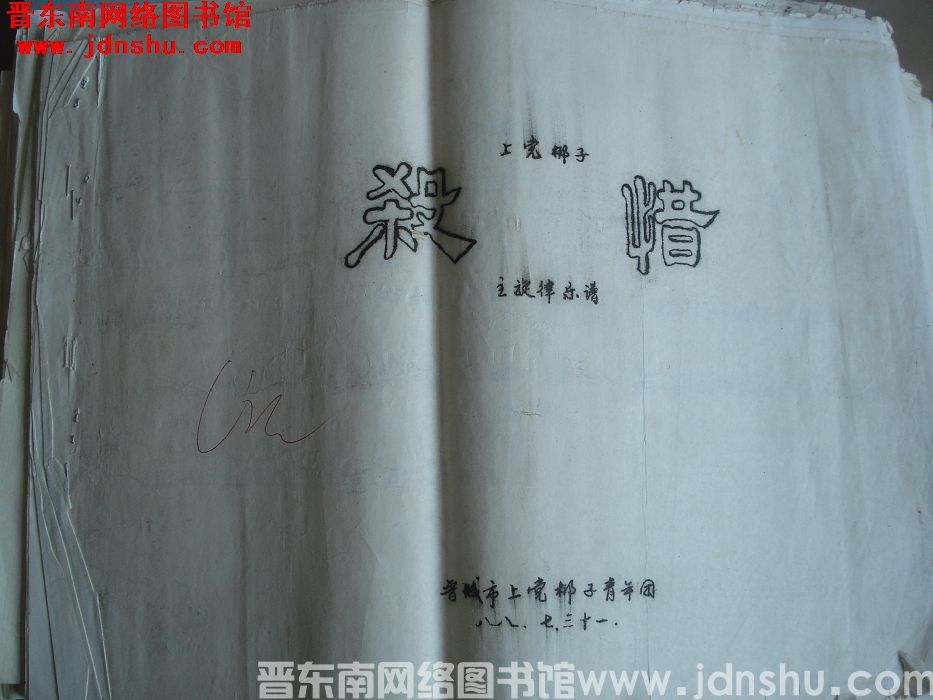 晋东南网络图书馆
www.jdnshu.com
上党梆子
殺惜
主旋律乐谱
晋城市上党梆子青年团
八八.七.三十一.
晋东南网络图书馆 www.jdnshu.com